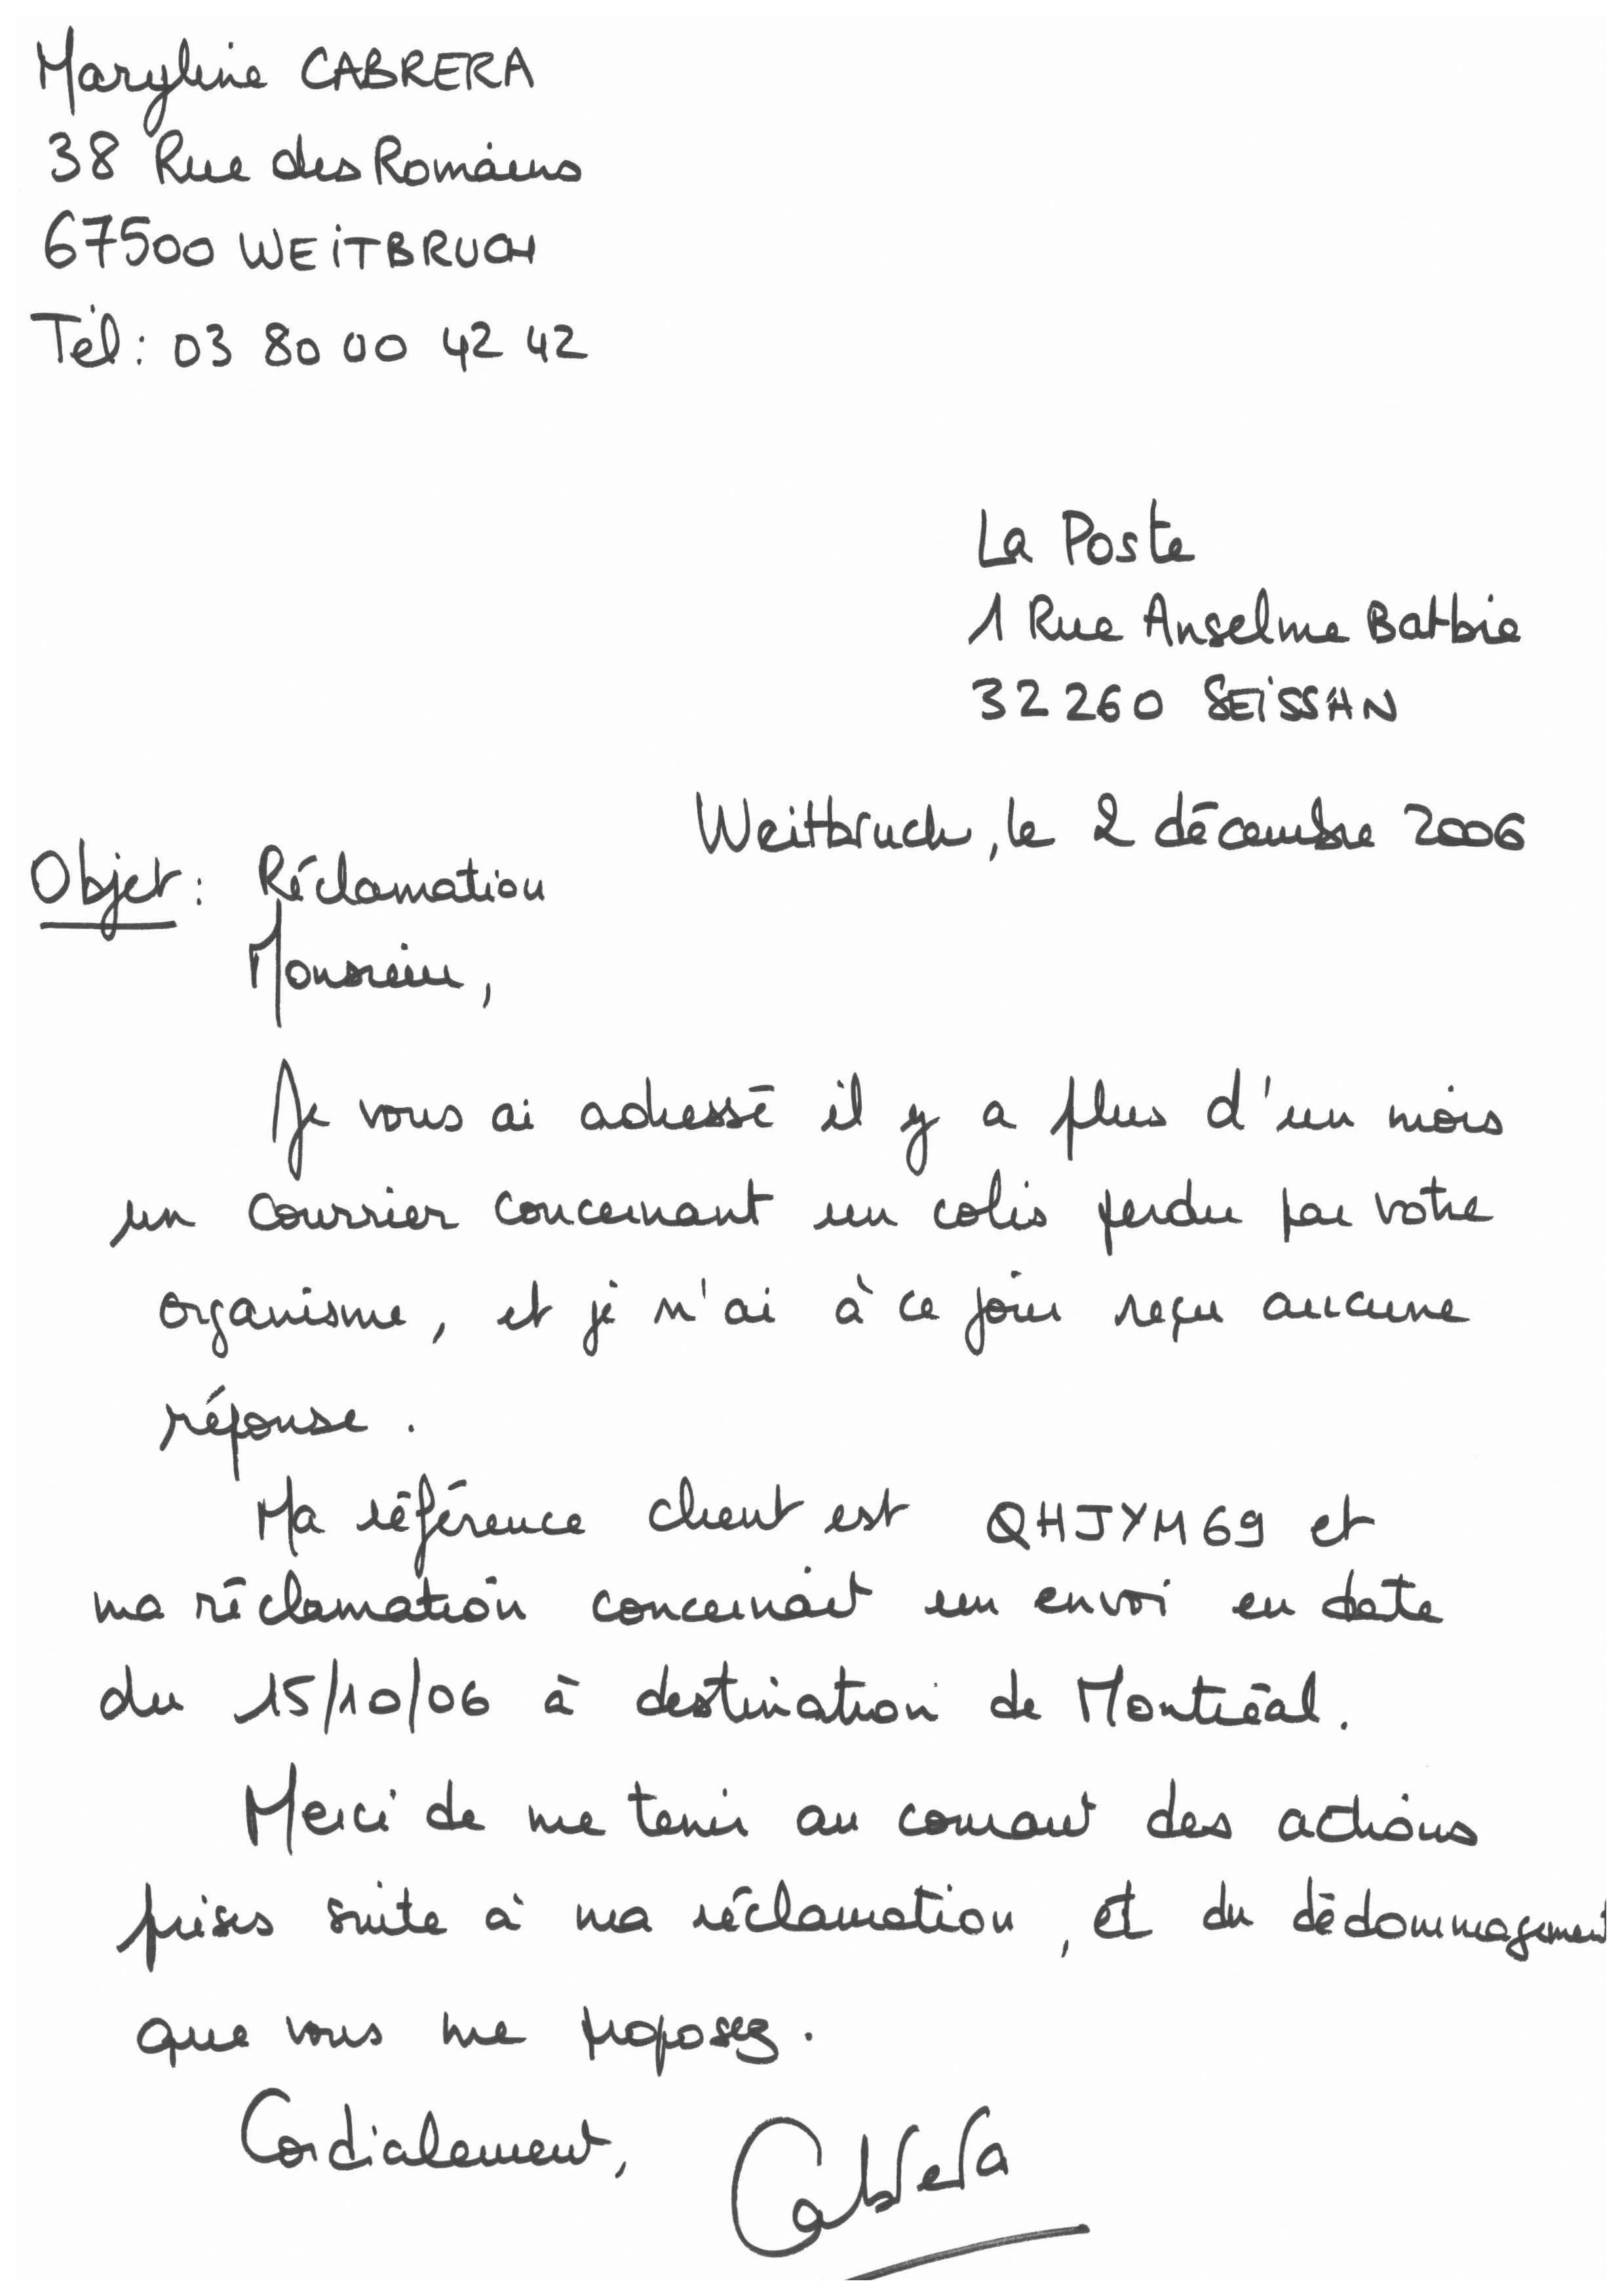 Maryline CABRERA
38 Rue des Romains
67500 WEITBRUCH
Tél : 03 80 00 42 42
La Poste
1 Rue Anselme Batbie
32260 SEISSAN
Weitbruch, le 2 décembre 2006
Objet : Réclamation
Monsieur,
Je vous ai adressé il y a plus d'un mois
un courrier concernant un colis perdu par votre
organisme, et je n'ai à ce jour reçu aucune
réponse.
Ma référence client est QHJYM69 et
ma réclamation concernait un envoi en date
du 15/10/06 à destination de Montréal.
Merci de me tenir au courant des actions
prises suite à ma réclamation, et du dédommagement
que vous me proposez.
Cordialement,
Cabrera